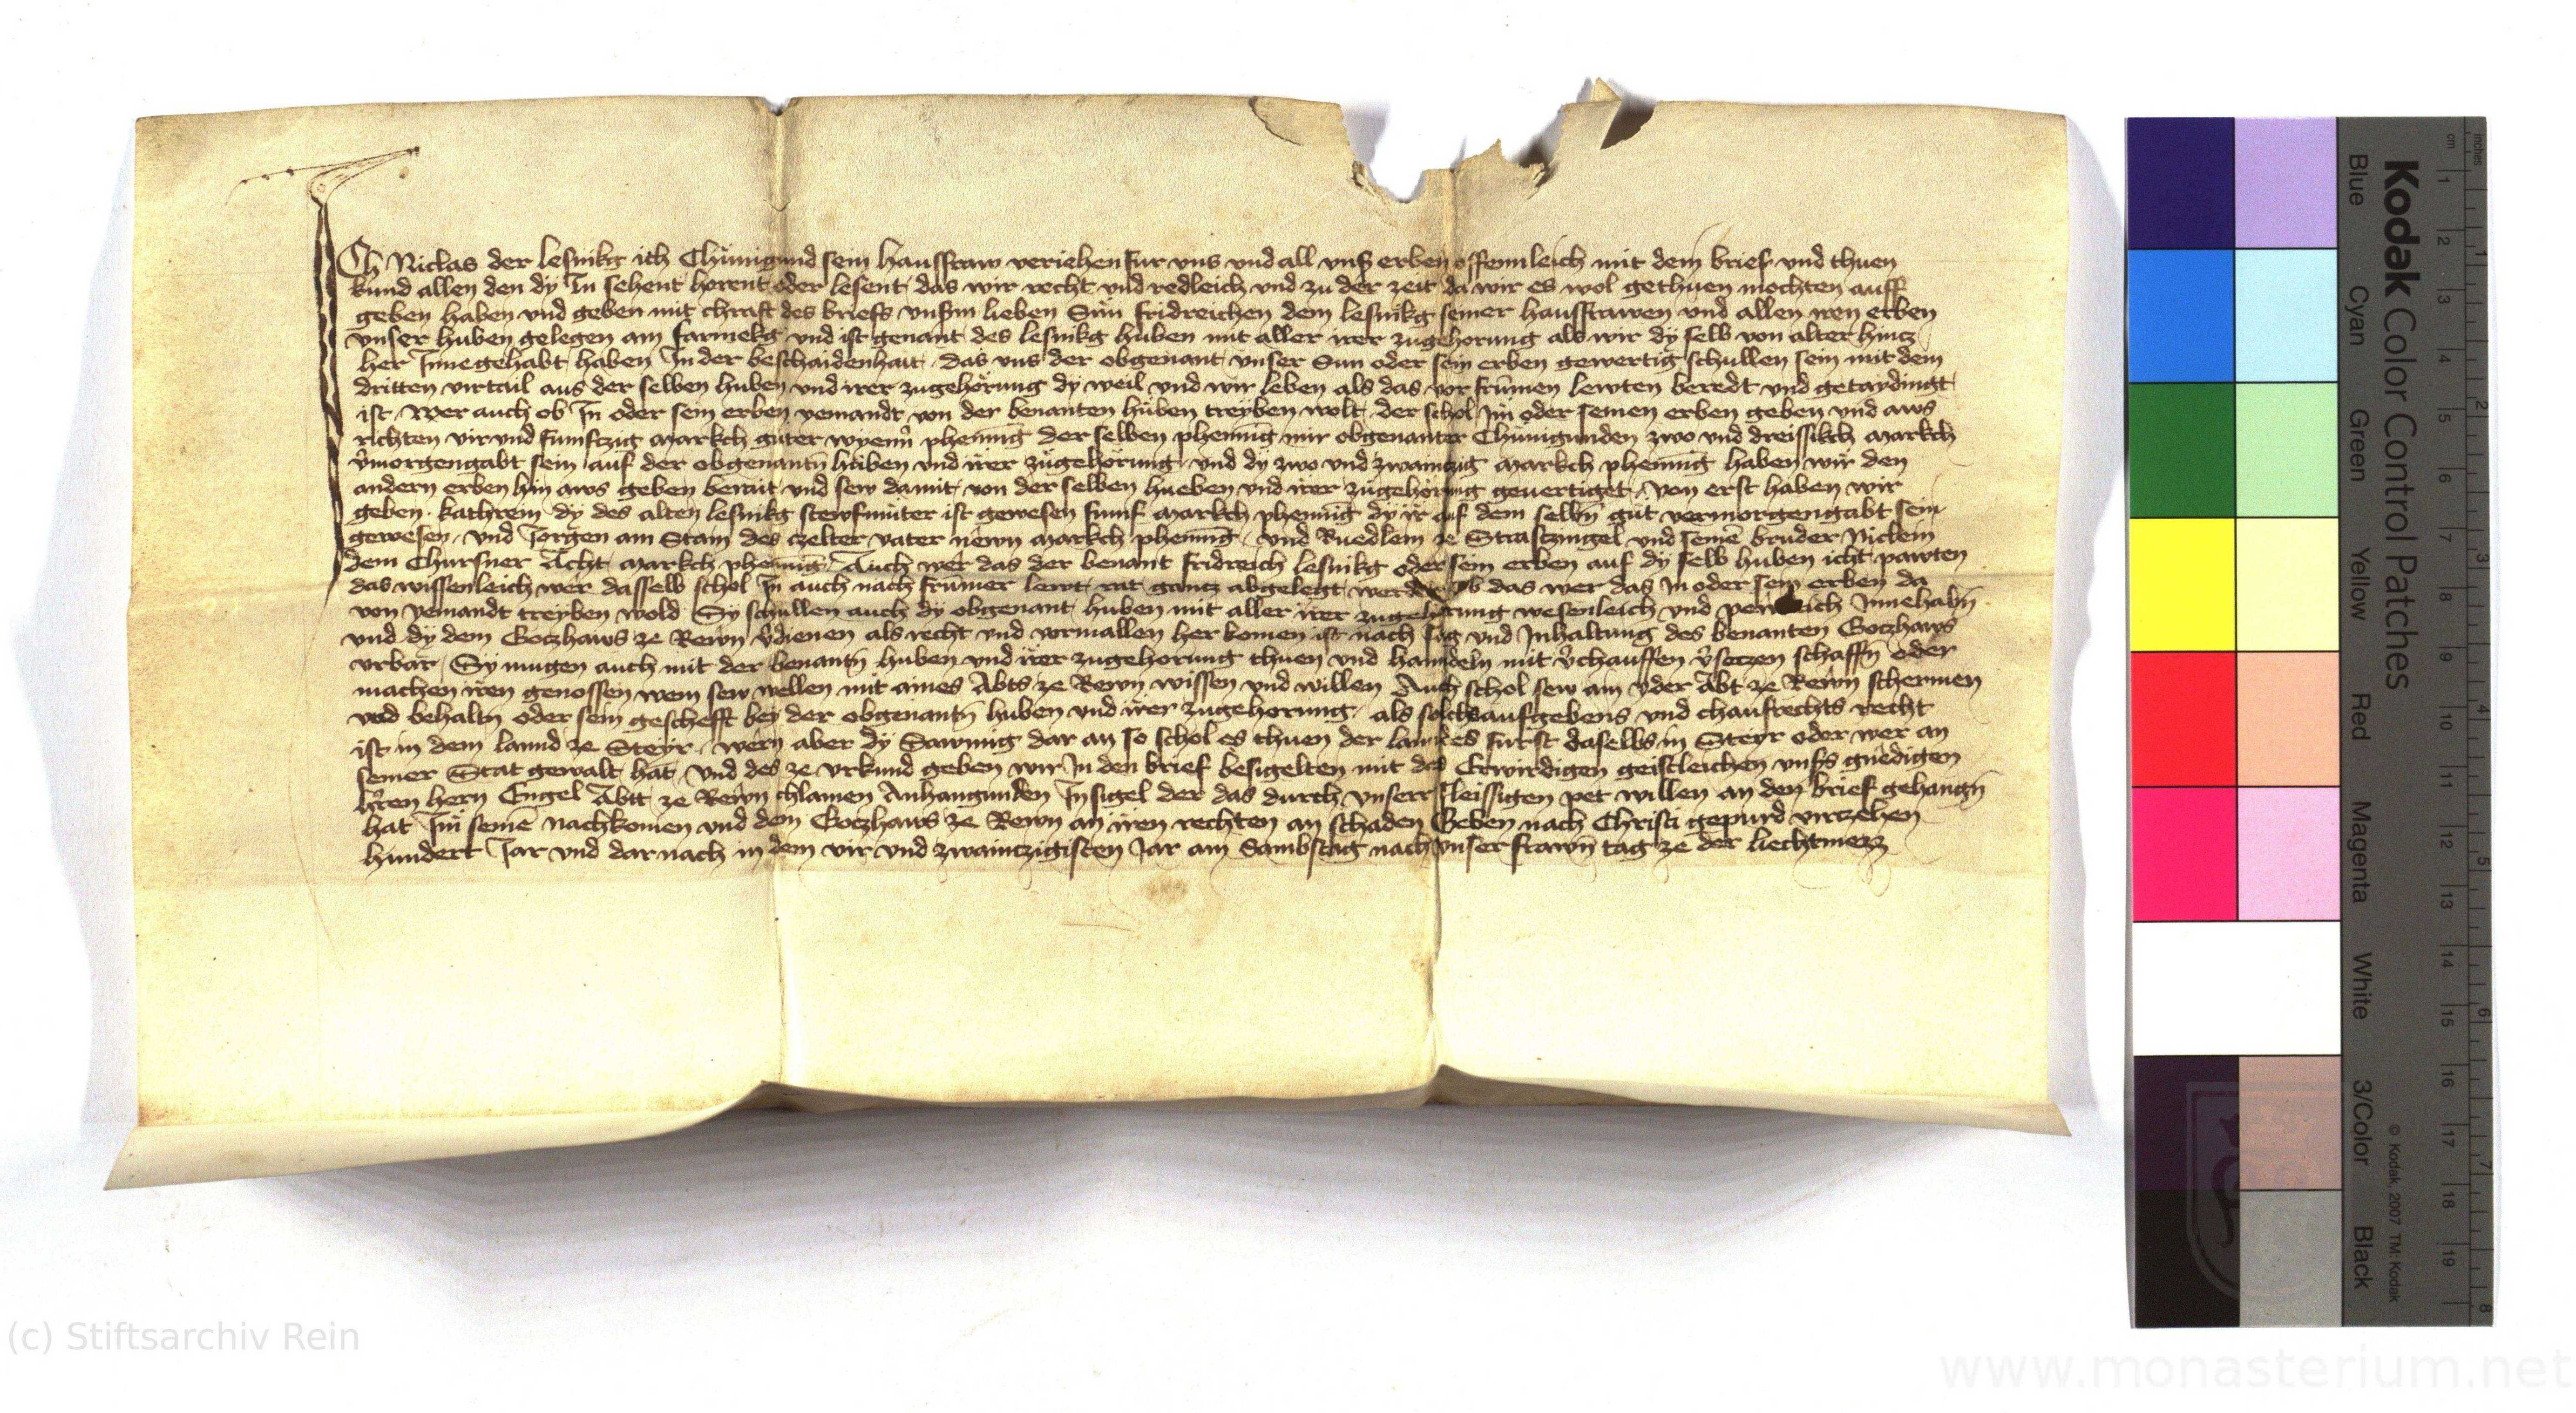 Ich Niclas der lesnikg ich Chunigund sein hausfraw veriehen fur vns vnd all vnſ erben offennleich mit dem brief vnd thuen
kund allen den dy In sehent horent oder lesent das wir recht vnd redleich vnd zu der zeit da wir es wol gethuen mochten auff
geben haben vnd geben mit chraft des briefs vnſm lieben Sun fridreichen dem lesnikg seiner hausfrawen vnd allen iren erben
vnser huben gelegen am farnekg vnd ist genant des lesnikg huben mit aller irer zugehorung als wir dy selb von alter hintz
her Innegehabt haben In der beschaidenhait das vns der obgenant vnser Sun oder sein erben gewertig schullen sein mit dem
dritten virtail aus der selben huben vnd irer zugehorung dy weil vnd wir leben als das vor frumen lewten beredt vnd getaydingt
ist Wer auch ob In oder sein erben yemandt von der benanten huben treyben wolt der schol im oder seinen erben geben vnd aws
richten vir vnd funftzig markch guter wyenn phennig der selben phennig mir obgenanter Chunigunden zwo vnd dreissikch markch
vmorgengabt sein auf der obgenantn huben vnd irer zugehorung vnd dy zwo vnd zwaintzig markch phennig haben wir den
andern erben hin aws geben berait vnd sew damit von der selben hueben vnd irer zugehorung geuertiget Von erst haben wir
geben kathrein dy des alten lesnikg stewfmuter ist gewesen funf markch phennig dy ir auf dem selbn gut vermorgengabt sein
gewesen vnd Jorgen am Stain des czelter vater newn markch phennig vnd Ruedlein ze Strasczingel vnd seine bruder Niclein
dem Chursner Acht markch phennig Auch wer das der benant fridreich lesnikg oder sein erben auf dy selb huben icht pawten
das wissenleich wer dasselb schol In auch nach frumer lewt rat gantz abgelegt werden ob das wer das In oder sein erben da
von yemandt treyben wold Sy schullen auch dy obgenant huben mit aller irer zugehorung wesenleich vnd pewleich Innehabn
vnd dy dem Goczhaws ze Rewn vdienen als recht vnd vormallen her komen ist nach sag vnd Inhaltung des benanten Goczhaws
vrbar Sy mugen auch mit der benantn huben vnd irer zugehorung thuen vnd hanndeln mit vchauffen vseczen schaffn oder
machen iren genossen wem sew wellen mit aines Abts ze Rewn wissen vnd willen Auch schol sew ain yder Abt ze Rewn schermen
vnd behaltn oder sein gescheft bey der obgenantn huben vnd irer zugehorung als solchs aufgebens vnd chaufrechts recht
ist in dem lannd ze Steyr wern aber dy Sawmig dar an so schol es thuen der landes furst daselbs in Steyr oder wer an
seiner Stat gewalt hat Vnd des ze vrkund geben wir In den brief besigelten mit des Erwirdigen geistleichen vnſs gnedigen
hren hern Engel Abtt ze Rewn chlainen Anhangunden Insigel der das durch vnserr fleissigen pet willen an den brief gehangn
hat Im seine nachkomen vnd dem Goczhaws ze Rewn an iren rechten an schaden Geben nach Christi gepurd virczehen
hundert Jar vnd dar nach in dem vir vnd zwainczigisten Jar am Sambstag nach vnser frawn tag ze der liechtmezz
Kodak Color Control Patches
Blue Cyan Green Yellow Red Magenta White 3/Color Black
© Kodak, 2007 TM: Kodak
inches 1 2 3 4 5 6 7 8
cm 1 2 3 4 5 6 7 8 9 10 11 12 13 14 15 16 17 18 19
(c) Stiftsarchiv Rein
www.monasterium.net